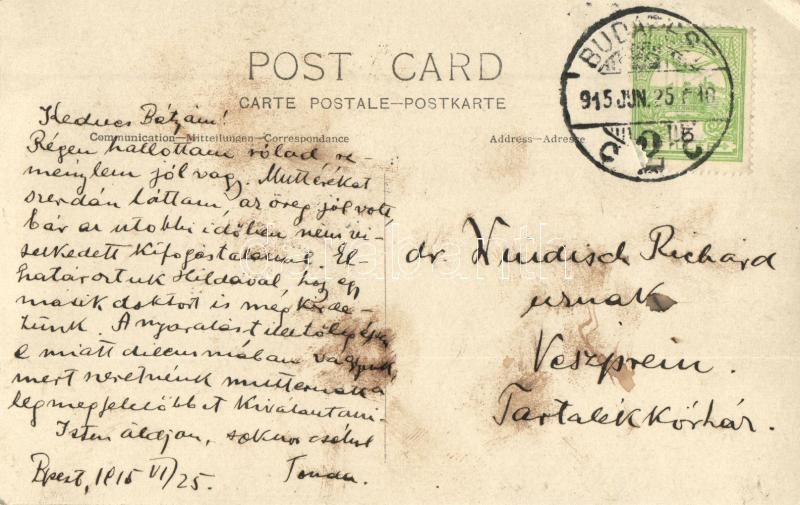 POST CARD
CARTE POSTALE—POSTKARTE
Communication—Mitteilungen—Correspondance
Address—Adresse
BUDAPEST
915 JUN. 25
2
Kedves Bátyám!
Régen hallottam rólad re-
ménylem jól vagy. Mutteréket
szerdán láttam, az öreg jól volt
bár az utobbi időben nem vi-
selkedett kifogástalanul. El-
határoztuk Hildával, hogy egy
másik doktort is megkérde-
zünk. A nyaralást illetőleg
e miatt dilemmában vagyunk
mert szeretnénk mutternak a
legmegfelelőbbet kiválasztani.
Isten áldjon, sokszor csókol
Bpest, 1915 VI/25.
dr. Windisch Richárd
urnak
Veszprém.
Tartalékkórház.
darabanth